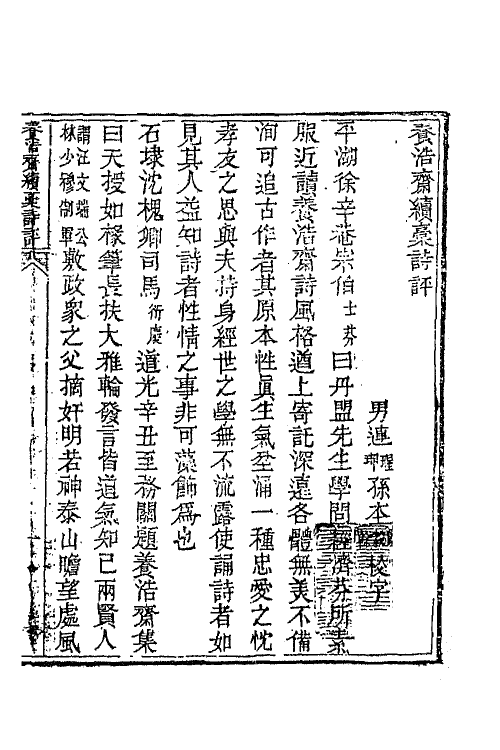 養浩齋續稾詩評
男連琟琊孫本校字
平湖徐辛菴宗伯士芬曰丹盟先生學問經濟芬所素
服近讀養浩齋詩風格遒上寄託深遠各體無美不備
洵可追古作者其原本性眞生氣坌涌一種忠愛之忱
孝友之思與夫持身經世之學無不流露使誦詩者如
見其人益知詩者性情之事非可藻飾爲也
石埭沈槐卿司馬衍慶道光辛丑至務關題養浩齋集
曰天授如椽筆長扶大雅輪發言皆道氣知已兩賢人
謂汪文瑞公林少穆制軍敷政衆之父摘奸明若神泰山瞻望處風
養浩齋續稾詩評